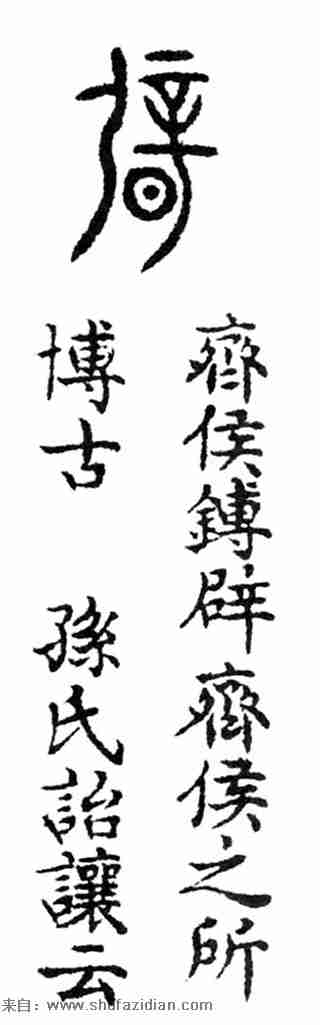 齊侯鎛辟齊侯之所
博古 孫氏詒讓云
来自：www.shufazidian.com